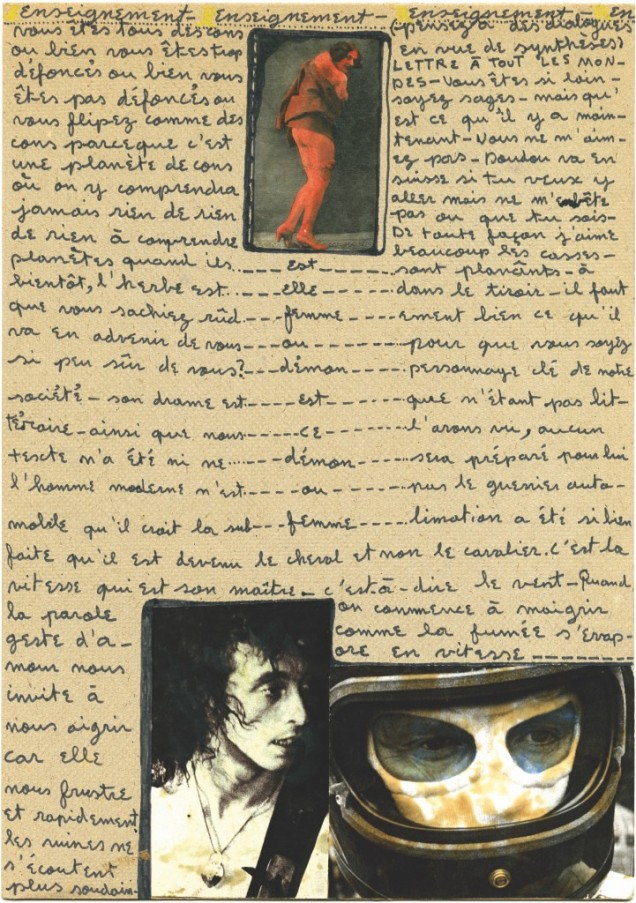 Enseignement - Enseignement - Enseignement - En
vous êtes tous des cons
ou bien vous êtes trop
défoncés ou bien vous
êtes pas défoncés ou
vous flipez comme des
cons parceque c'est
une planète de cons
où on y comprendra
jamais rien de rien
de rien à comprendre
(pensez à des dialogues
en vue de synthèses)
LETTRE À TOUT LES MON-
DES - Vous êtes si loin -
soyez sages - mais qu'
est ce qu'il y a main-
tenant - Vous ne m'aim-
ez pas - Doudou va en
suisse si tu veux y
aller mais ne m'embête
pas ou que tu sois -
De toute façon j'aime
beaucoup les casses -
planètes quand ils ---- est ---- sont planants - à
bientôt, l'herbe est ---- elle ---- dans le tiroir - il faut
que vous sachiez rûd ---- femme ---- ement bien ce qu'il
va en advenir de vous --- ou ---- pour que vous soyez
si peu sûr de vous? --- démon ---- personnage clé de notre
société - son drame est ---- est ---- que n'étant pas lit-
téraire - ainsi que nous ---- ce ---- l'avons vu, aucun
texte n'a été ni ne ---- démon ---- sera préparé pour lui
l'homme moderne n'est ---- ou ---- pas le guerrier auto-
mobile qu'il croit la sub --- femme ---- limation a été si bien
faite qu'il est devenu le cheval et non le cavalier. C'est la
vitesse qui est son maître - c'est-à-dire le vent - Quand
la parole
geste d'a-
mour nous
invite à
nous aigrir
car elle
nous frustre
et rapidement
les ruines ne
s'écoutent
plus soudain-
on commence à maigrir
comme la fumée s'évap-
ore en vitesse --------